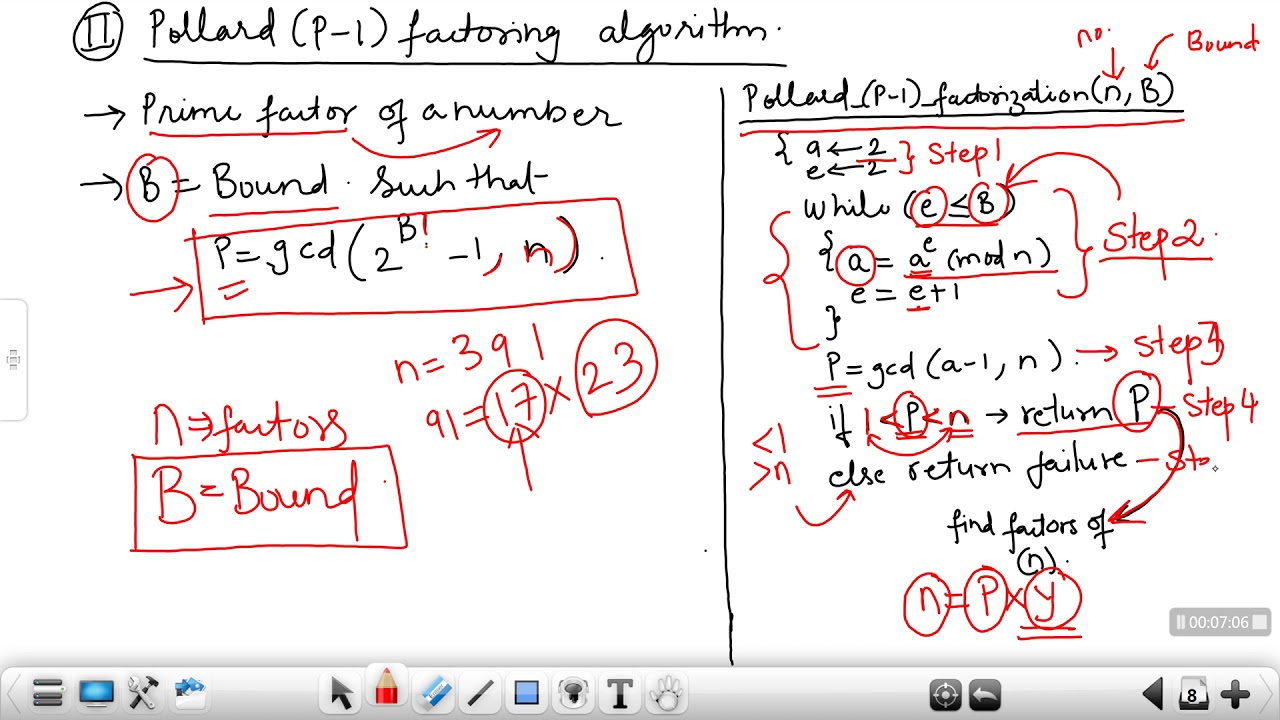 II Pollard (P-1) factoring algorithm.
→ Prime factor of a number
→ B = Bound. Such that
P = gcd (2^B! - 1, n).
n = 391
91 = 17 × 23
n ⇒ factors
B = Bound
no. Bound
Pollard_(P-1)_factorization(n, B)
{ a ← 2 } Step 1
e ← 2
while (e ≤ B)
{ a = a^e (mod n) Step 2.
e = e+1
}
P = gcd (a-1, n). → Step 3
if 1 < P < n → return P – Step 4
<1
>n else return failure – Ste
find factors of
(n).
n = P × y
00:07:06
T 8